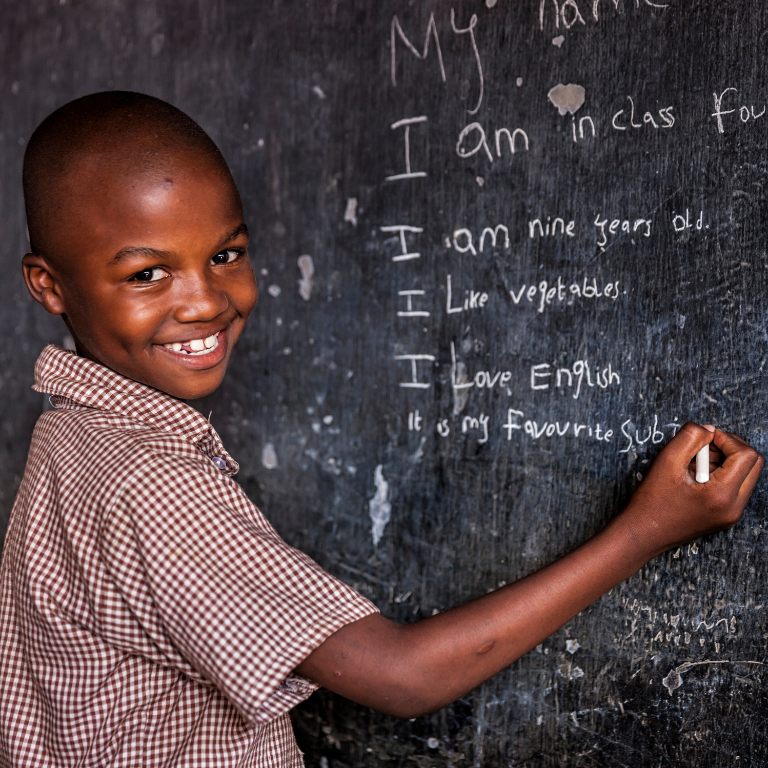 My name
I am in class fou
I am nine years old.
I Like vegetables.
I Love English
It is my favourite Subj